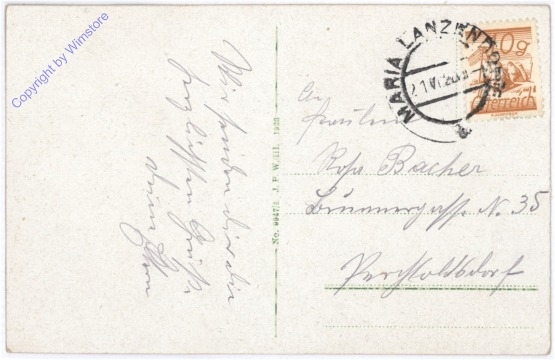 Copyright by Wimstore
Wir senden dir die
herzlichsten Grüße
deine
No. 9947/3 J. F. W. III. 1928
MARIA LANZENDORF
21.VI.28
10g
Österreich
An
Fräulein
Rosa Bacher
Brunnergasse No. 35
Perchtoldsdorf